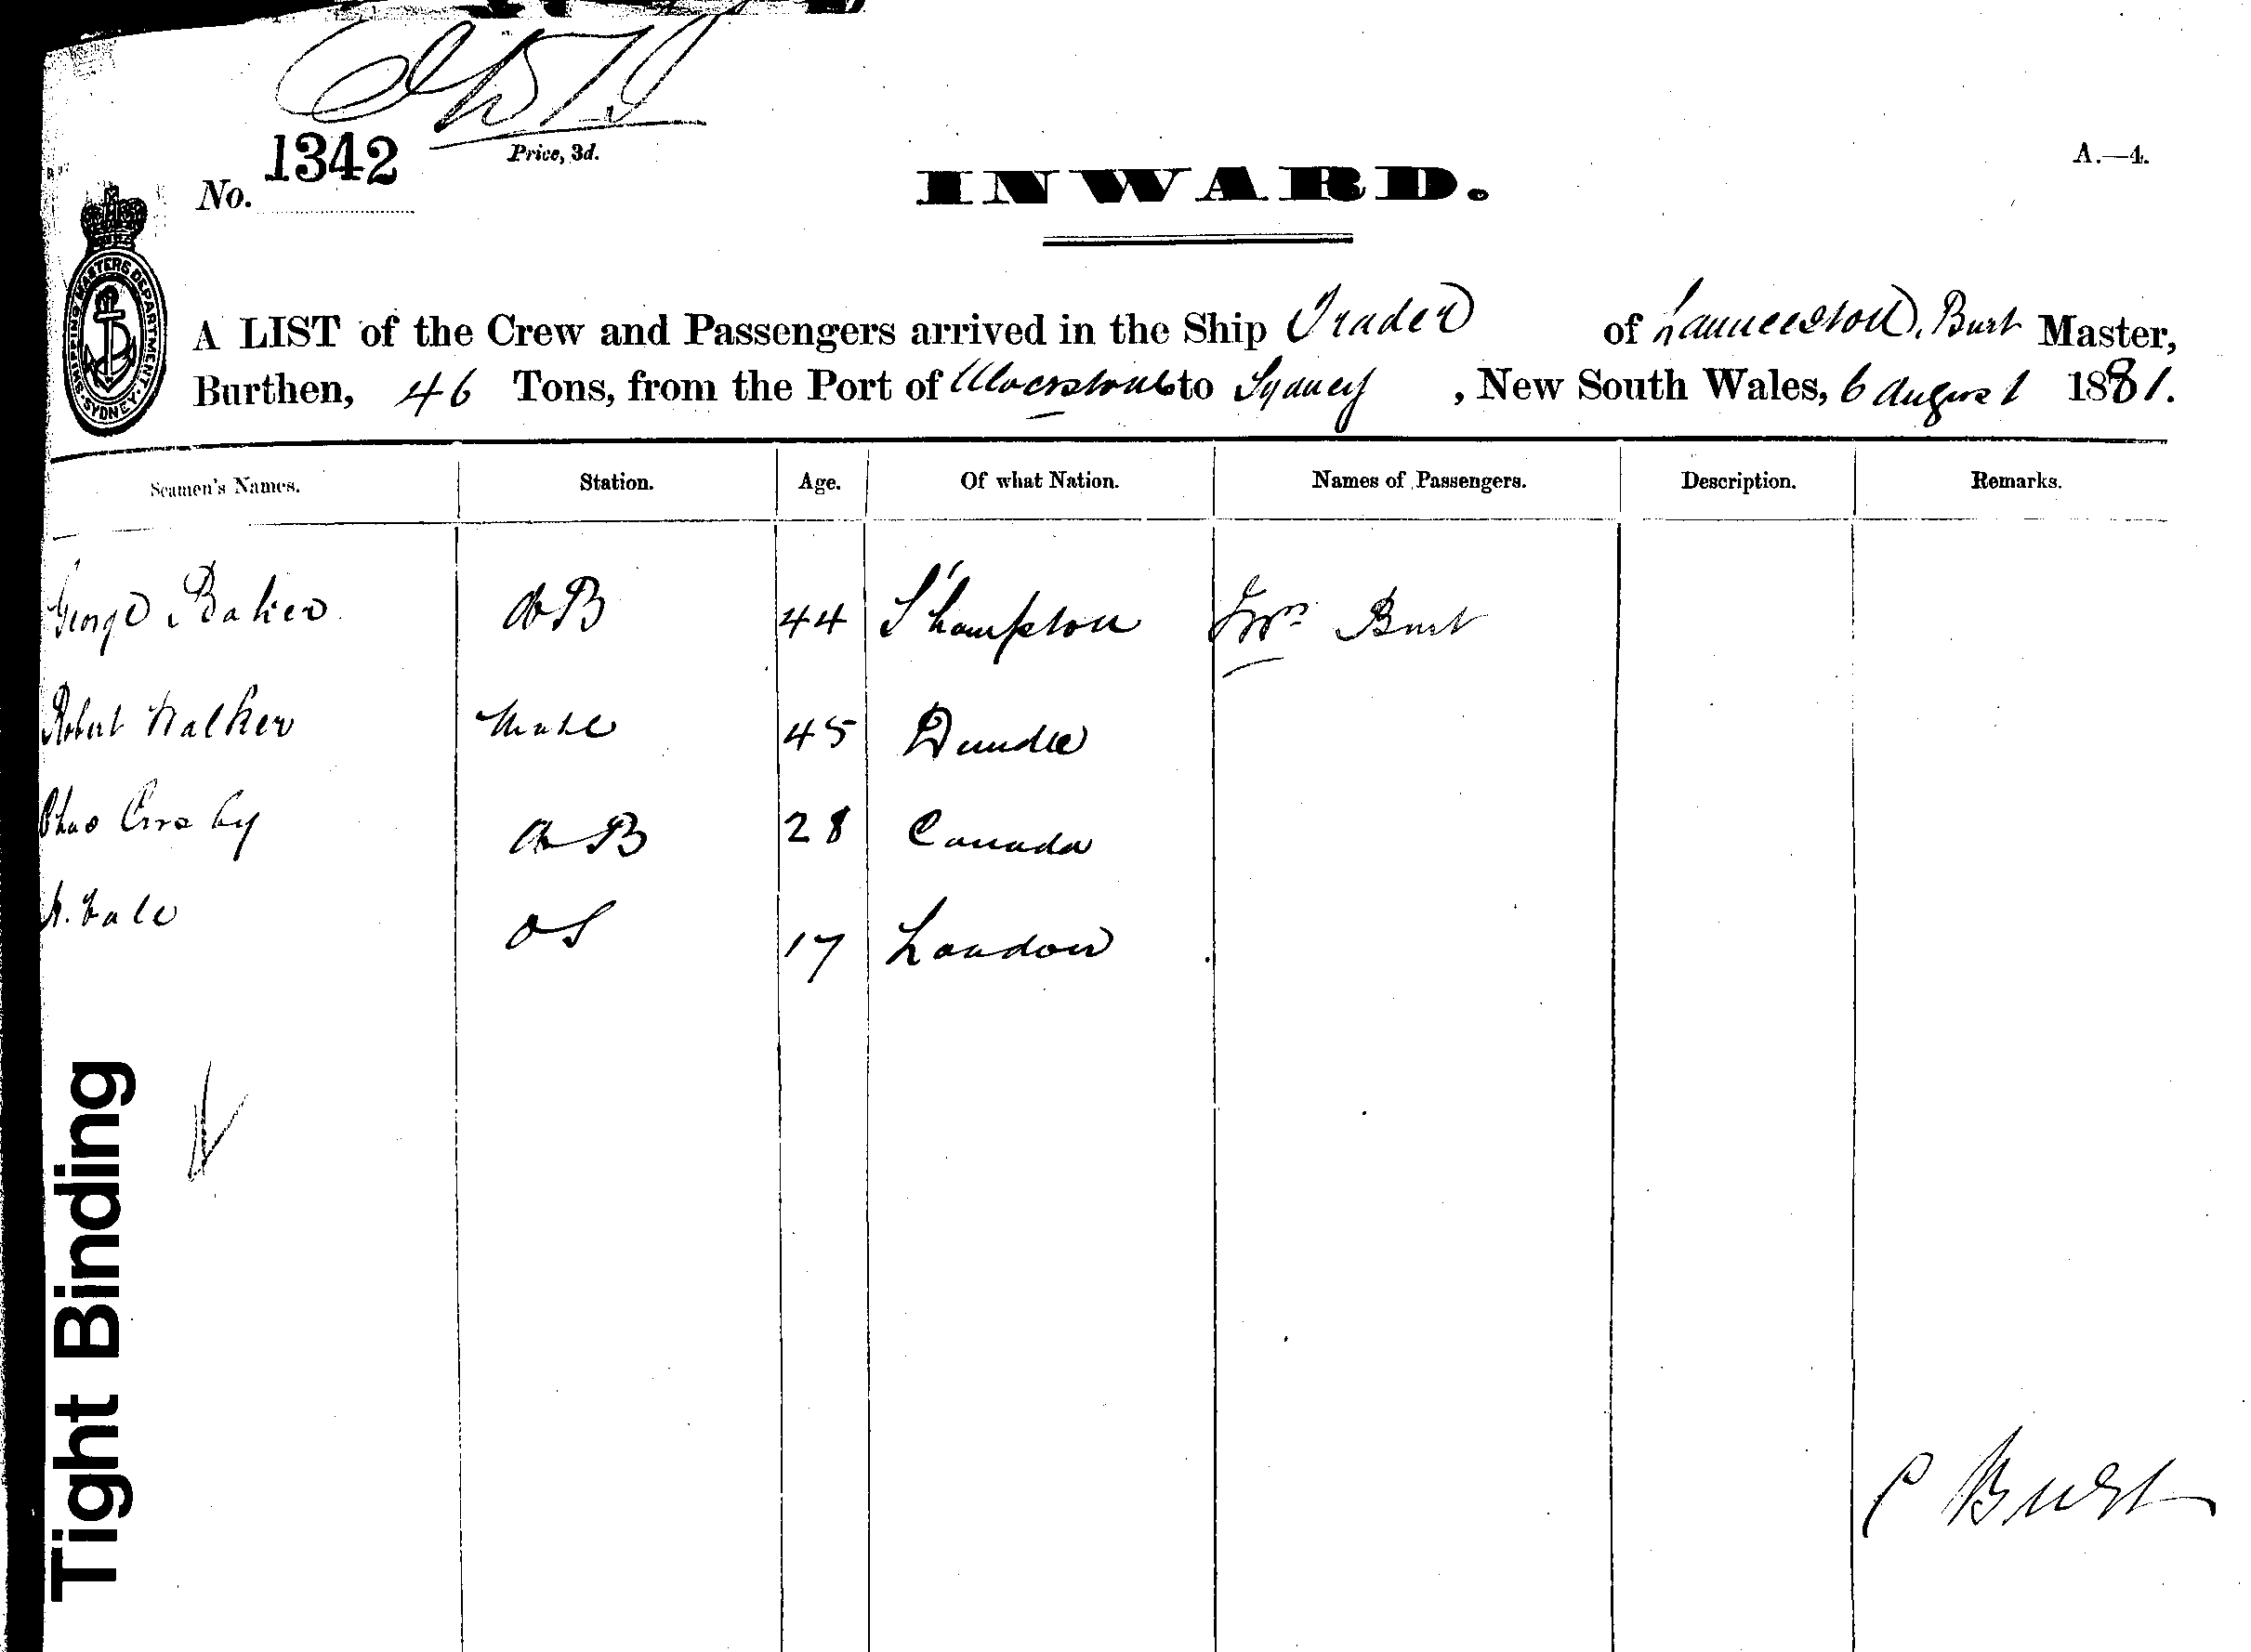 No. 1342
Price, 3d.
INWARD.
A.—4.
SHIPPING MASTERS DEPARTMENT. SYDNEY.
A LIST of the Crew and Passengers arrived in the Ship Trader of Launceston, Burt Master,
Burthen, 46 Tons, from the Port of Ulverstone to Sydney, New South Wales, 6 August 1881.
Seamen's Names. Station. Age. Of what Nation. Names of Passengers. Description. Remarks.
George Baker AB 44 S'hampton Mrs Burt
Robert Walker Mate 45 Dundee
Chas Crosby AB 28 Canada
OS 17 London
Tight Binding
C Burt